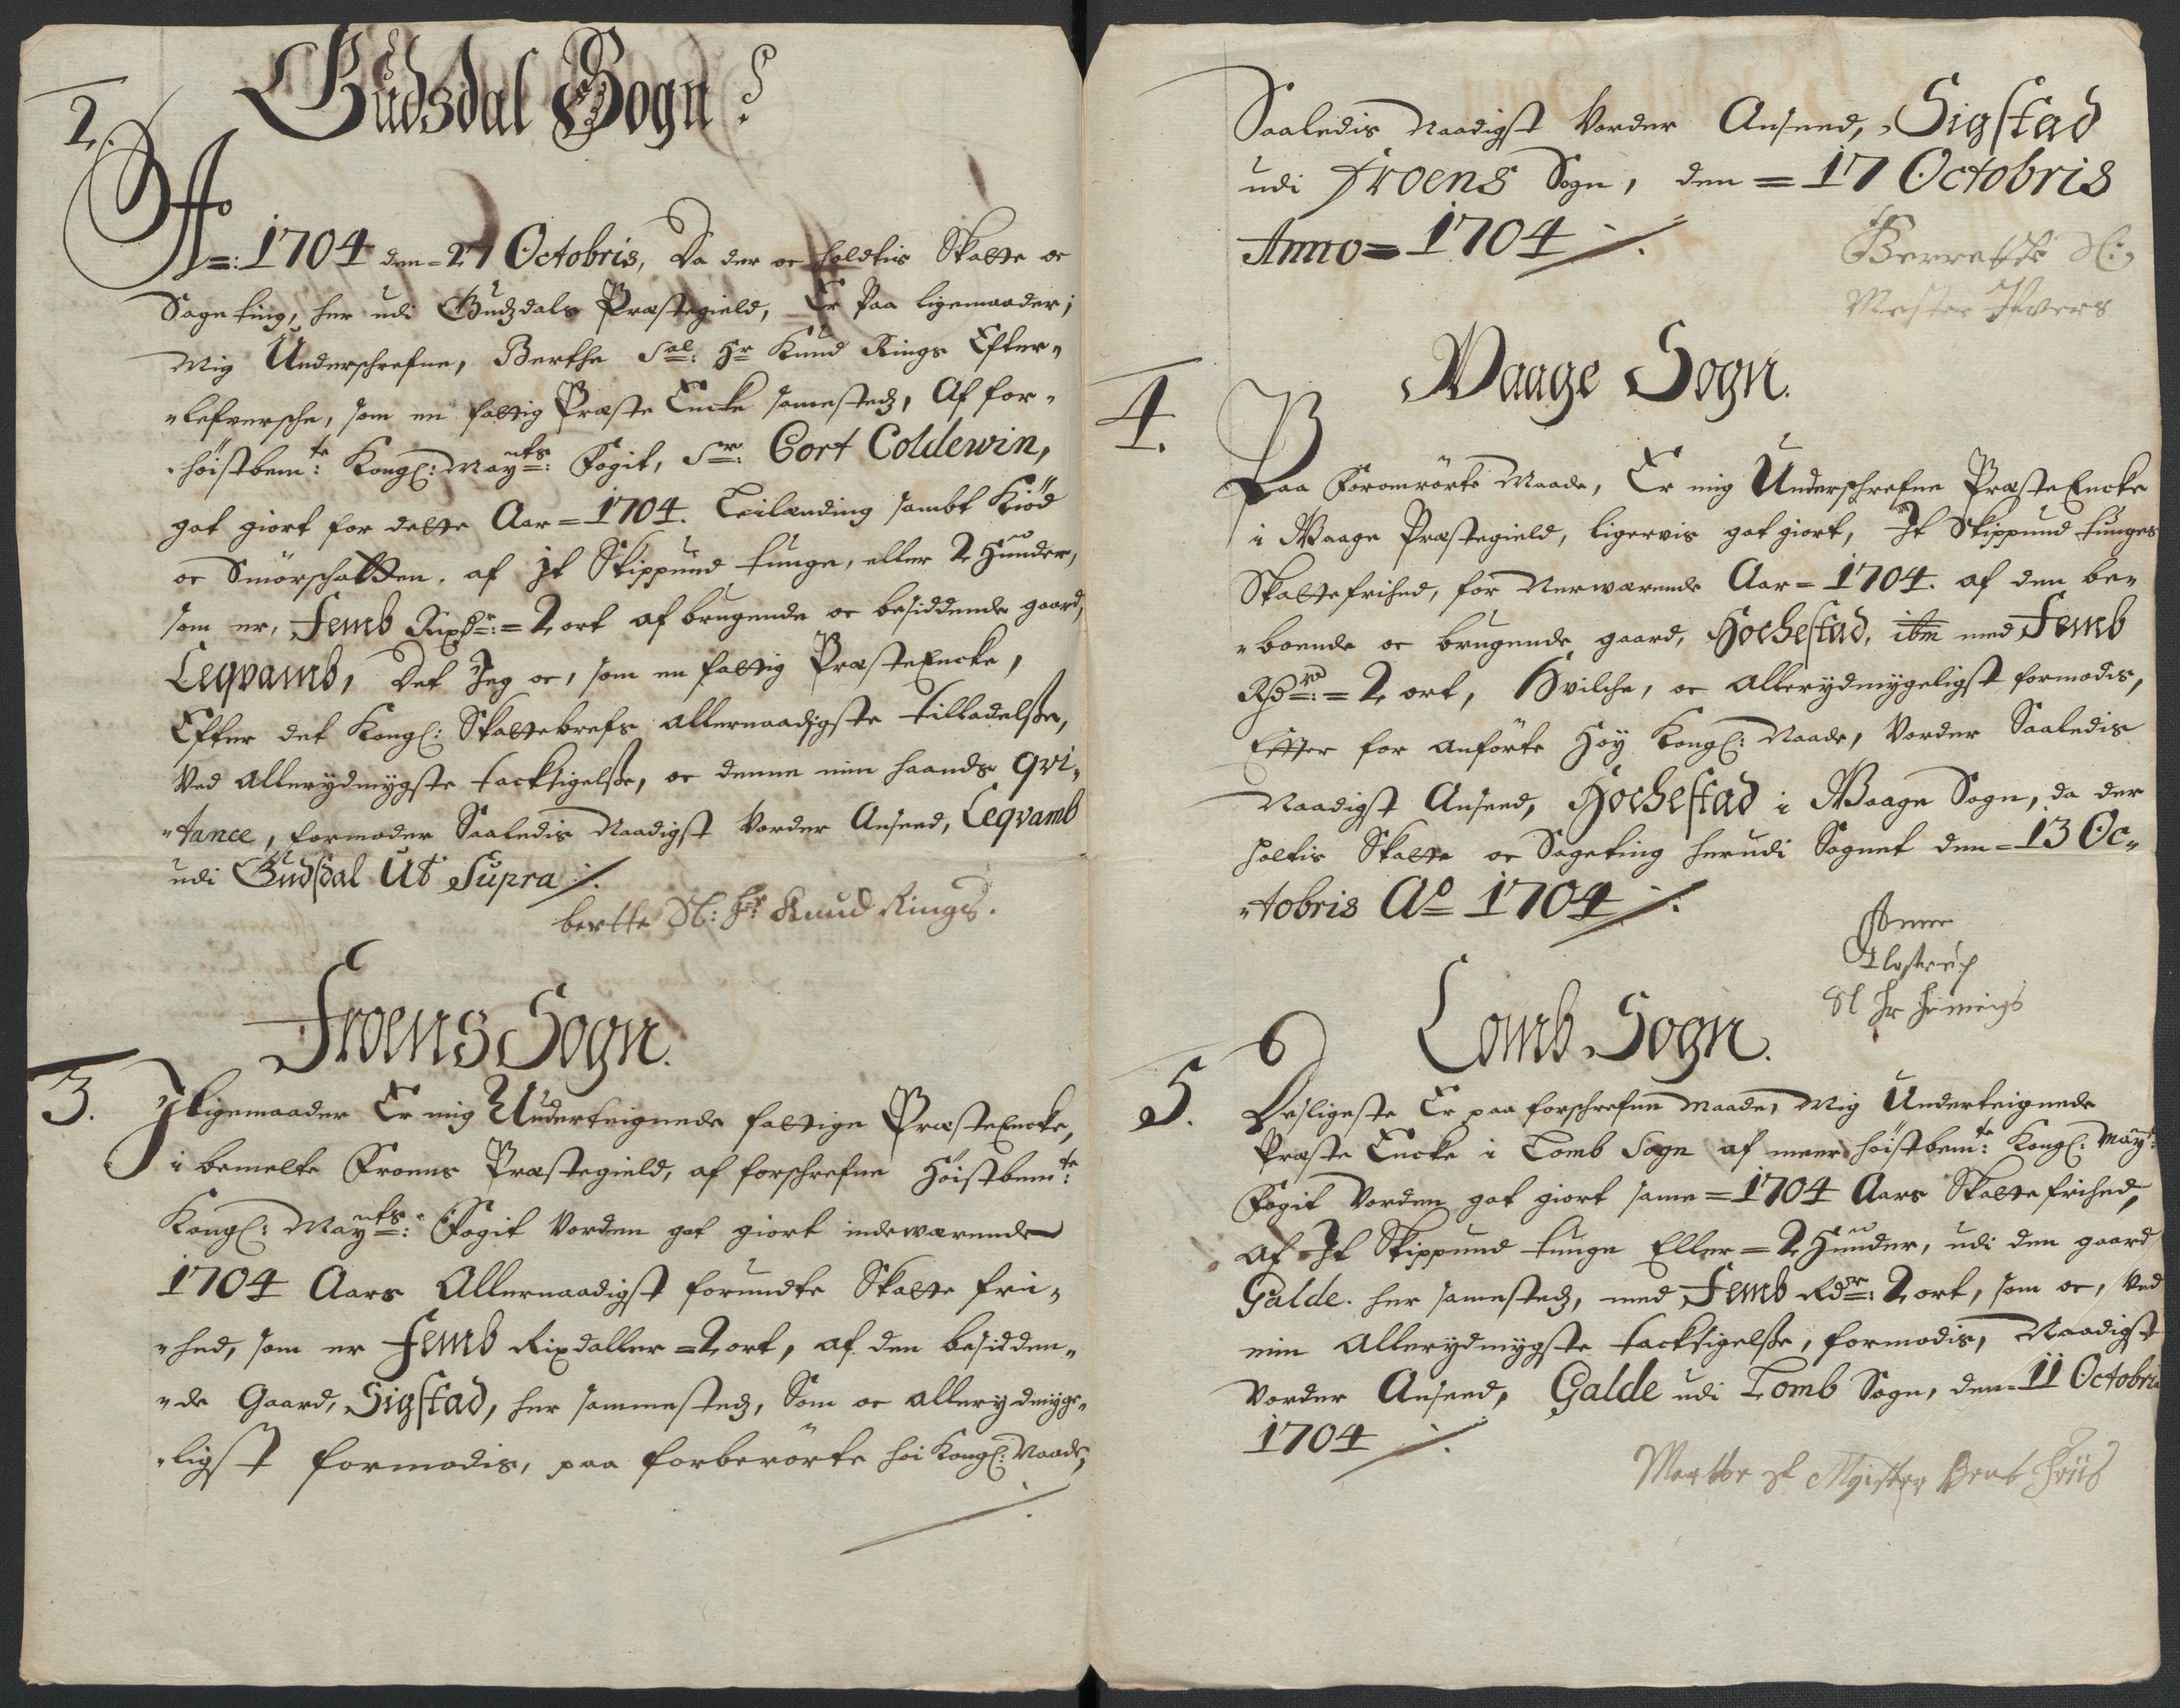 2.
Gudsdal Sogn
Ao=: 1704 den=27 Octobris, Da der oc holdtis Skatte oc
Sage ting, her udi Gudzdals Præstegield, Er Paa ligemaader;
Mig Underschrefne, Berthe Sal: Hr Knud Rings Efter„
„lefversche, som en fattig Præste Encke sammestedz, Af for„
„höistbemte: Kongl: Mayts: Fogit, Sr: Cort Coldewin,
got giort for dette Aar=1704. Leilænding sambt Kiöd
oc Smörschatten. af It Skippund tunge, eller 2 Hunder,
som er, Femb Rixdr:=2 ort af brugende oc besiddende gaard,
Leqvamb, Det Jeg oc, som en fattig PræsteEncke,
Efter det Kongl: Skattebrefs allernaadigste tilladelsse,
Ved allerydmygste tacksigelsse, oc denne min haands qvi„
„tance, formoder Saaledis Naadigst Vorder Anseed, Leqvamb
udi Gudsdal Ut Supra ./.
berthe Sl: Hr Knud Rings.
Froens Sogn.
3. Iligemaader Er mig Underteignede fattige PræsteEncke,
i bemelte Froens Præstegield, af forschrefne Höistbemte:
Kongl: Mayts: Fogit Vorden got giort indeværende
1704 Aars Allernaadigst forundte Skatte fri„
„hed, som er Femb Rixdaller=2 ort, af den besidden„
„de Gaard, Sigstad, her sammestedz, Som oc allerydmyge„
„ligst formodis, paa forberörte höi Kongl: Naade,
Saaledis Naadigst Vorder Anseed, Sigstad
udi Froens Sogn, den=17 Octobris
Anno=1704 ./.
Berrethe Sl:
Mester Ifvers
Waage Sogn.
4.
Paa Foromrörte Maade, Er mig Underschrefne PræsteEncke
i Waage Præstegield, ligervis got giort, It Skippund tunges
Skattefrihed, for Nerwærende Aar=1704. af den be„
„boende oc brugende gaard, Hochestad, ibm med Femb
Rdr:=2 ort, Hvilche, oc allerydmygeligst formodis,
Efter for anförte Höy Kongl: Naade, Vorder Saaledis
Naadigst Anseed, Hochestad i Waage Sogn, da der
holtis Skatte oc Sageting herudi Sognet den=13 Oc„
„tobris Ao 1704 ./.
Anne
Sl Hr
Lomb Sogn.
5. Desligeste Er paa forschrefne Maade, Mig Underteignede
Præste Encke i Lomb Sogn af meer höistbemte: Kongl: Mayts:
Fogit Vorden got giort samme=1704 Aars Skattefrihed,
Af It Skippund tunge Eller=2 Hunder, udi den gaard
Galde. her samestedz, med Femb Rdr: 2 ort, som oc, Ved
min Allerydmygste tacksigelsse, formodis, Naadigst
Vorder Anseed, Galde udi Lomb Sogn, den=11 Octobris
1704 ./.
Marthe sl Mgister